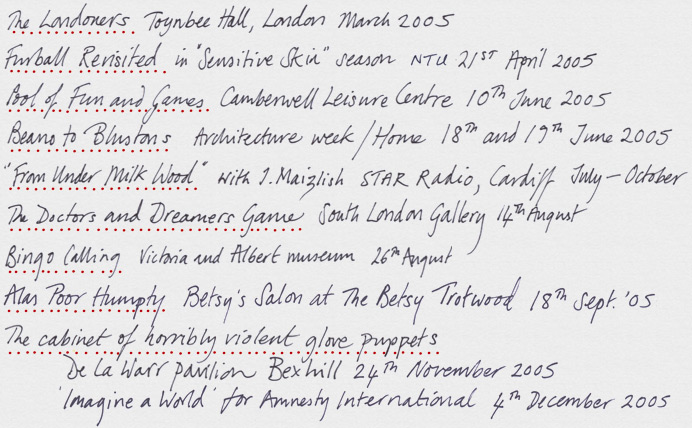 The Londoners Toynbee Hall, London March 2005
Furball Revisited in "Sensitive Skin" season NTU 21ST April 2005
Pool of Fun and Games Camberwell Leisure Centre 10TH June 2005
Beano to Blustons Architecture week/Home 18TH and 19TH June 2005
"From Under Milk Wood" with J. Maizlish STAR Radio, Cardiff July - October
The Doctors and Dreamers Game South London Gallery 14TH August
Bingo Calling Victoria and Albert museum 26TH August
Alas Poor Humpty Betsy's Salon at The Betsy Trotwood 18TH Sept. '05
The cabinet of horribly violent glove puppets
De La Warr pavilion Bexhill 24TH November 2005
'Imagine a World' for Amnesty International 4TH December 2005